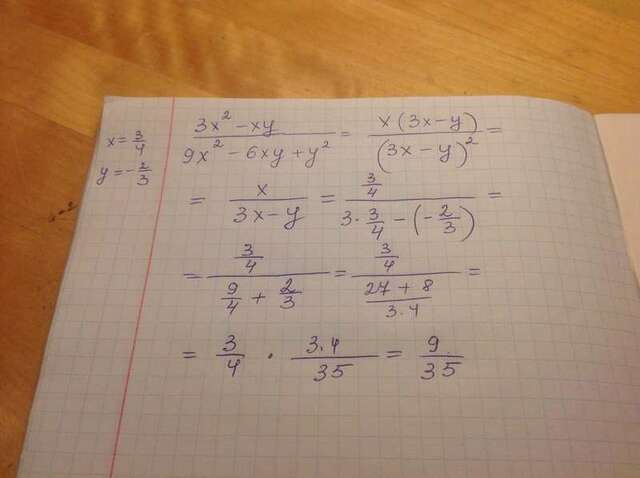 x = 3/4
y = -2/3
(3x² - xy)/(9x² - 6xy + y²) = x(3x - y)/(3x - y)² =
= x/(3x - y) = (3/4)/(3 · 3/4 - (-2/3)) =
= (3/4)/(9/4 + 2/3) = (3/4)/((27 + 8)/(3.4)) =
= 3/4 · (3.4)/35 = 9/35